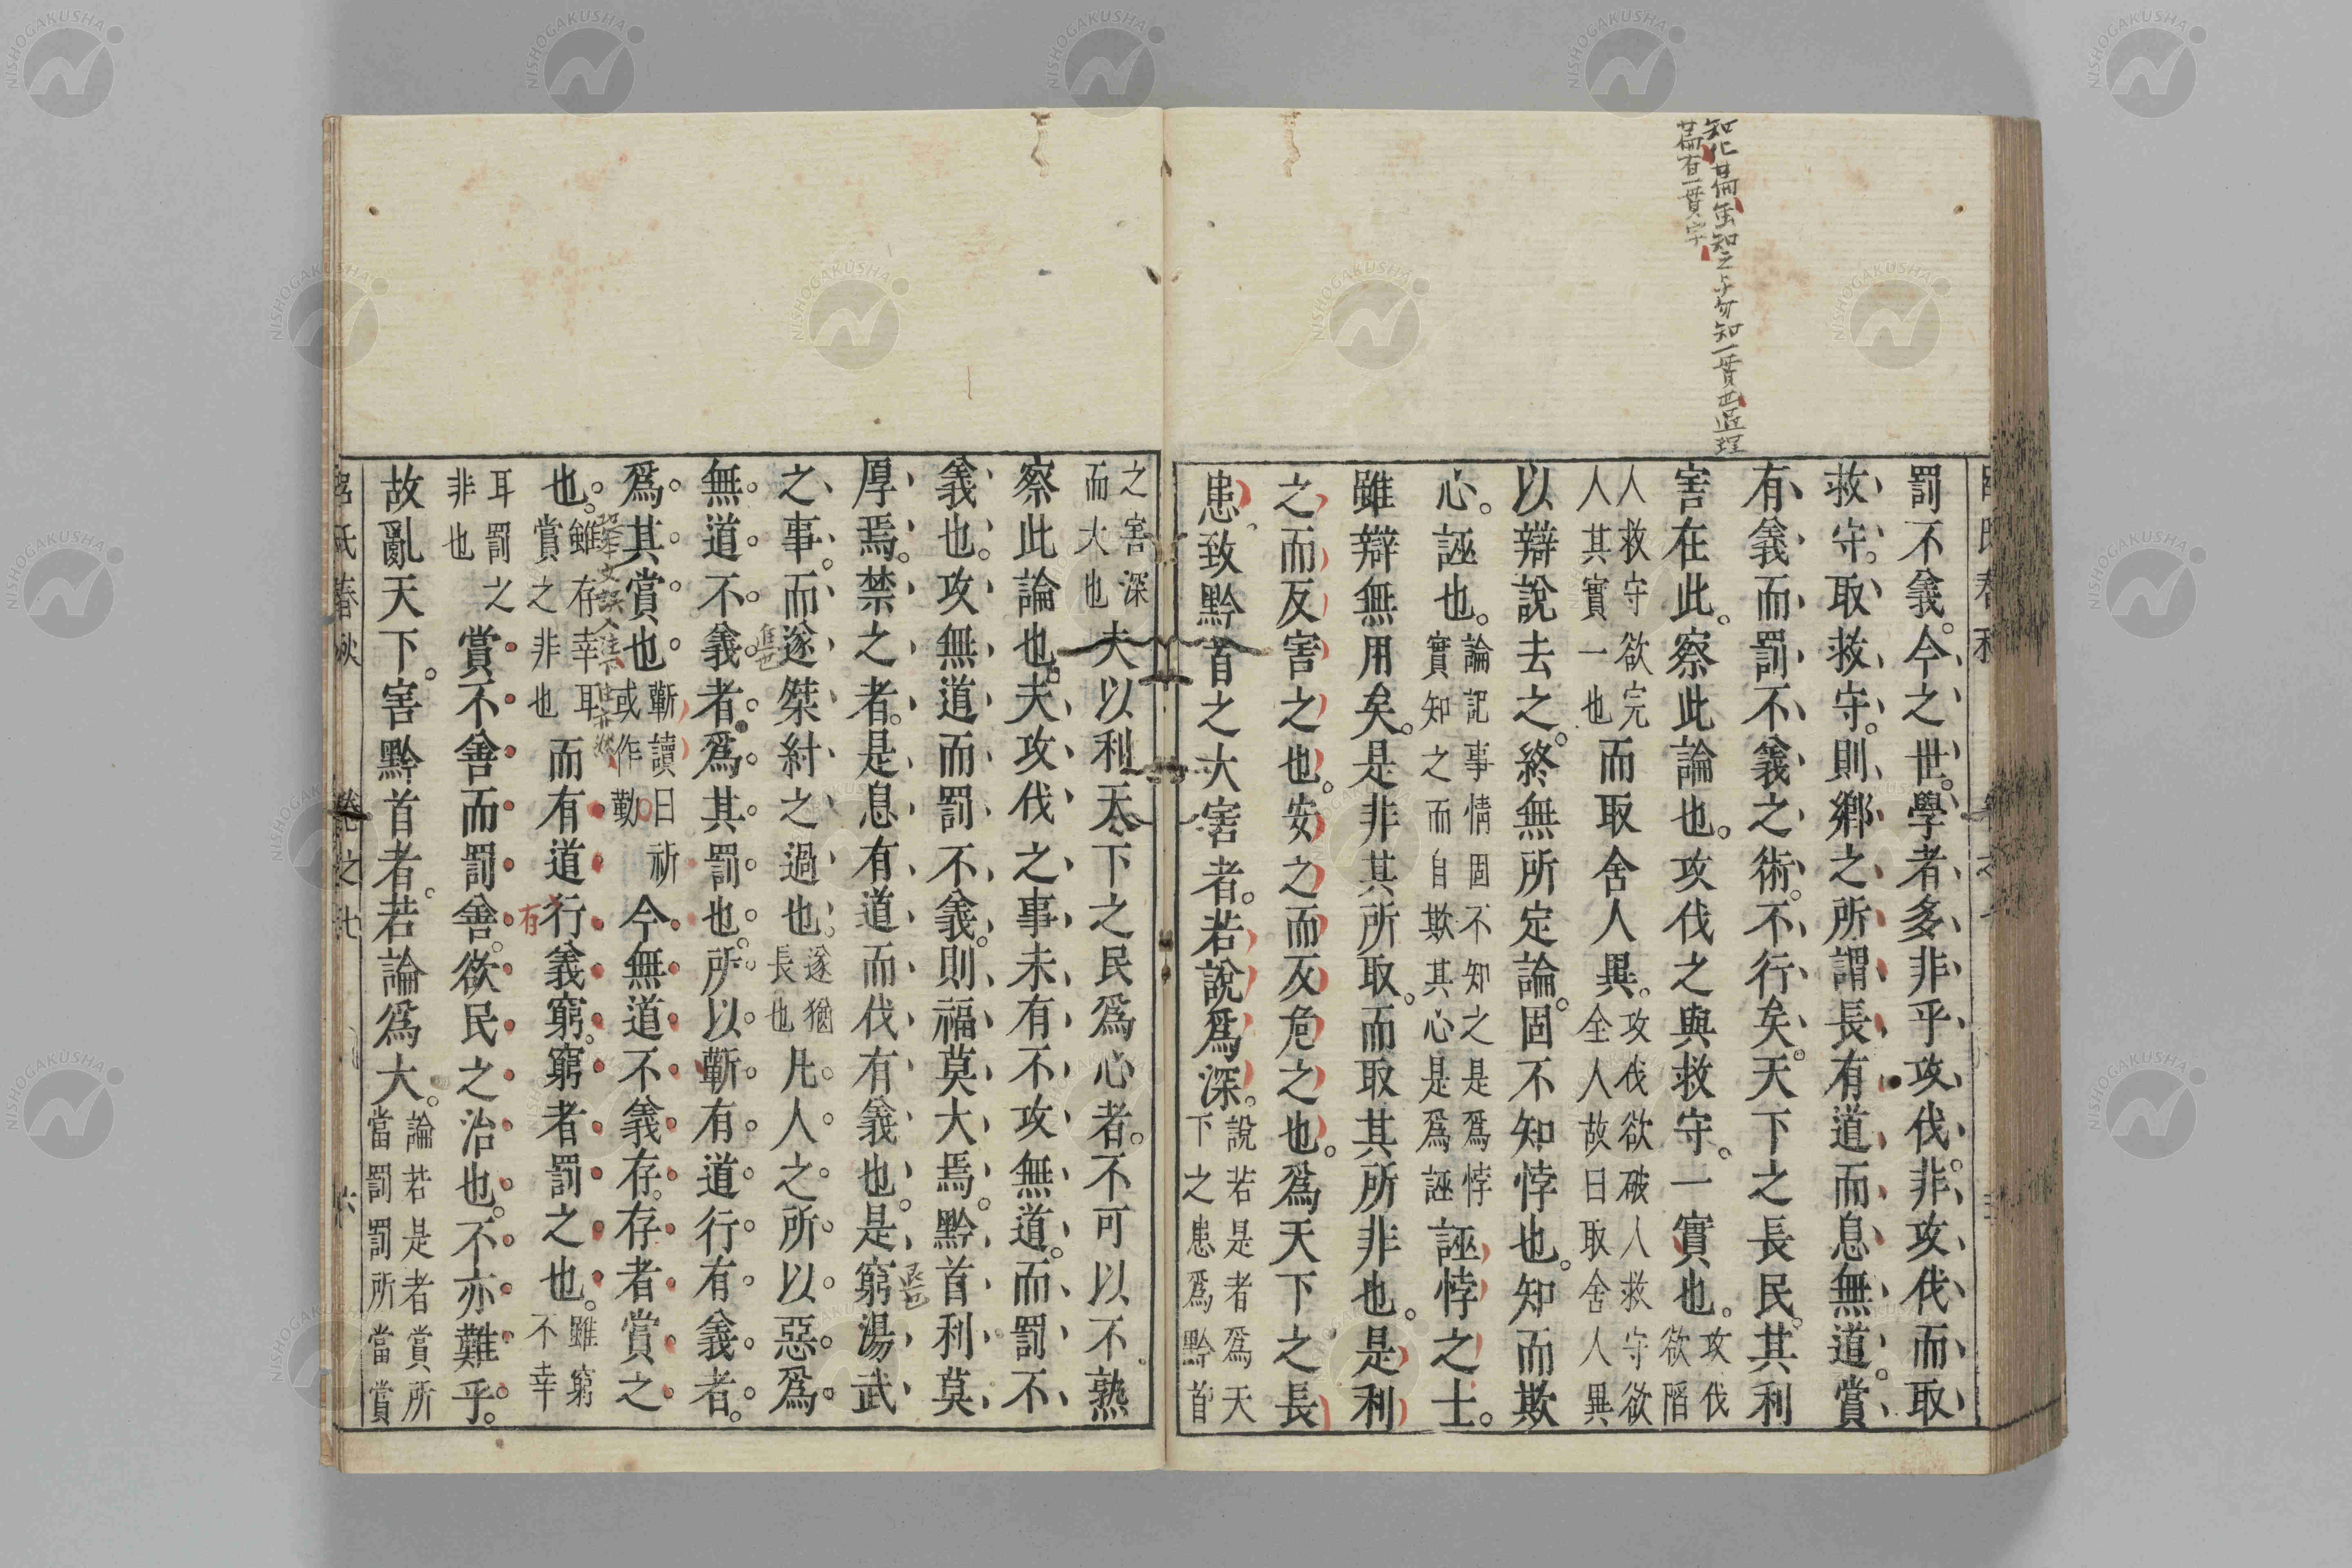 罰不義。今之世。學者多非乎攻伐。非攻伐而取
救守。取救守。則鄉之所謂長有道而息無道。賞
有義而罰不義之術。不行矣。天下之長民。其利
害在此。察此論也。攻伐之與救守。一實也。攻伐欲陷
人救守欲完人其實一也而取舍人異。攻伐欲破人救守欲全人故曰取舍人異
以辯說去之。終無所定論。固不知悖也。知而欺
心。誣也。論說事情固不知之是爲悖實知之而自欺其心是爲誣誣悖之士。
雖辯無用矣。是非其所取。而取其所非也。是利
之而反害之也。安之而反危之也。爲天下之長
患。致黔首之大害者。若說爲深。說若是者爲天下之患爲黔首
之害深而大也夫以利天下之民爲心者。不可以不熟
察此論也。夫攻伐之事。未有不攻無道。而罰不
義也。攻無道而罰不義。則福莫大焉。黔首利莫
厚焉。禁之者。是息有道而伐有義也。是窮湯武
之事。而遂桀紂之過也。遂猶長也凡人之所以惡爲
無道不義者。爲其罰也。所以蘄有道行有義者。
爲其賞也。蘄讀曰祈或作勤今無道不義存。存者賞之
也。雖存幸耳賞之非也而有道行義窮。窮者罰之也。雖窮不幸
耳罰之非也賞不善而罰善。欲民之治也。不亦難乎。
故亂天下。害黔首者。若論爲大。論若是者賞所當罰罰所當賞
呂氏春秋 卷之七 六
NISHOGAKUSHA